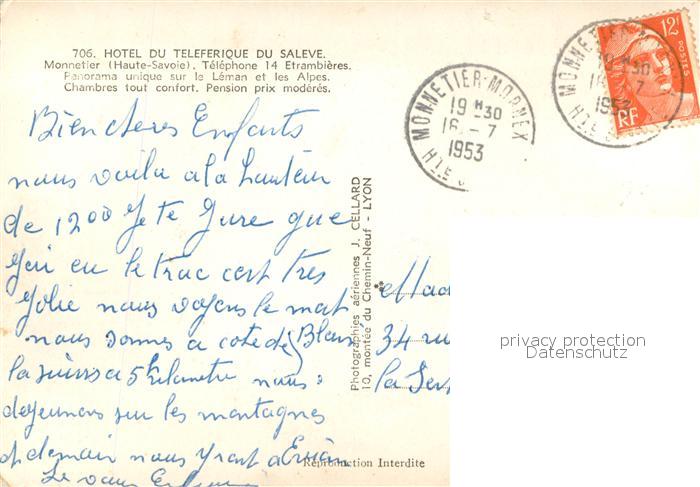 706. HOTEL DU TELEFERIQUE DU SALEVE.
Monnetier (Haute-Savoie). Téléphone 14 Etrambières.
Panorama unique sur le Léman et les Alpes.
Chambres tout confort. Pension prix modérés.
Bien cheres Enfants
nous voila a la hauteur
de 1200 Je te Jure que
Jai eu le trac cest tres
Jolie nous voyons le mat
nous sommes a cote de Blanc
la suisse a 5 kilometre nous
dejeunons sur les montagnes
et demain nous yront a Evian
Photographies aériennes J. CELLARD
10, montée du Chemin-Neuf - LYON
Reproduction Interdite
MONNETIER-MORNEX
19 H 30
16 - 7
1953
HTE S
MONNETIER-M
19 H 30
16 - 7
1953
HTE S
12F
POSTES
RF
Mad
34 ru
la
privacy protection
Datenschutz